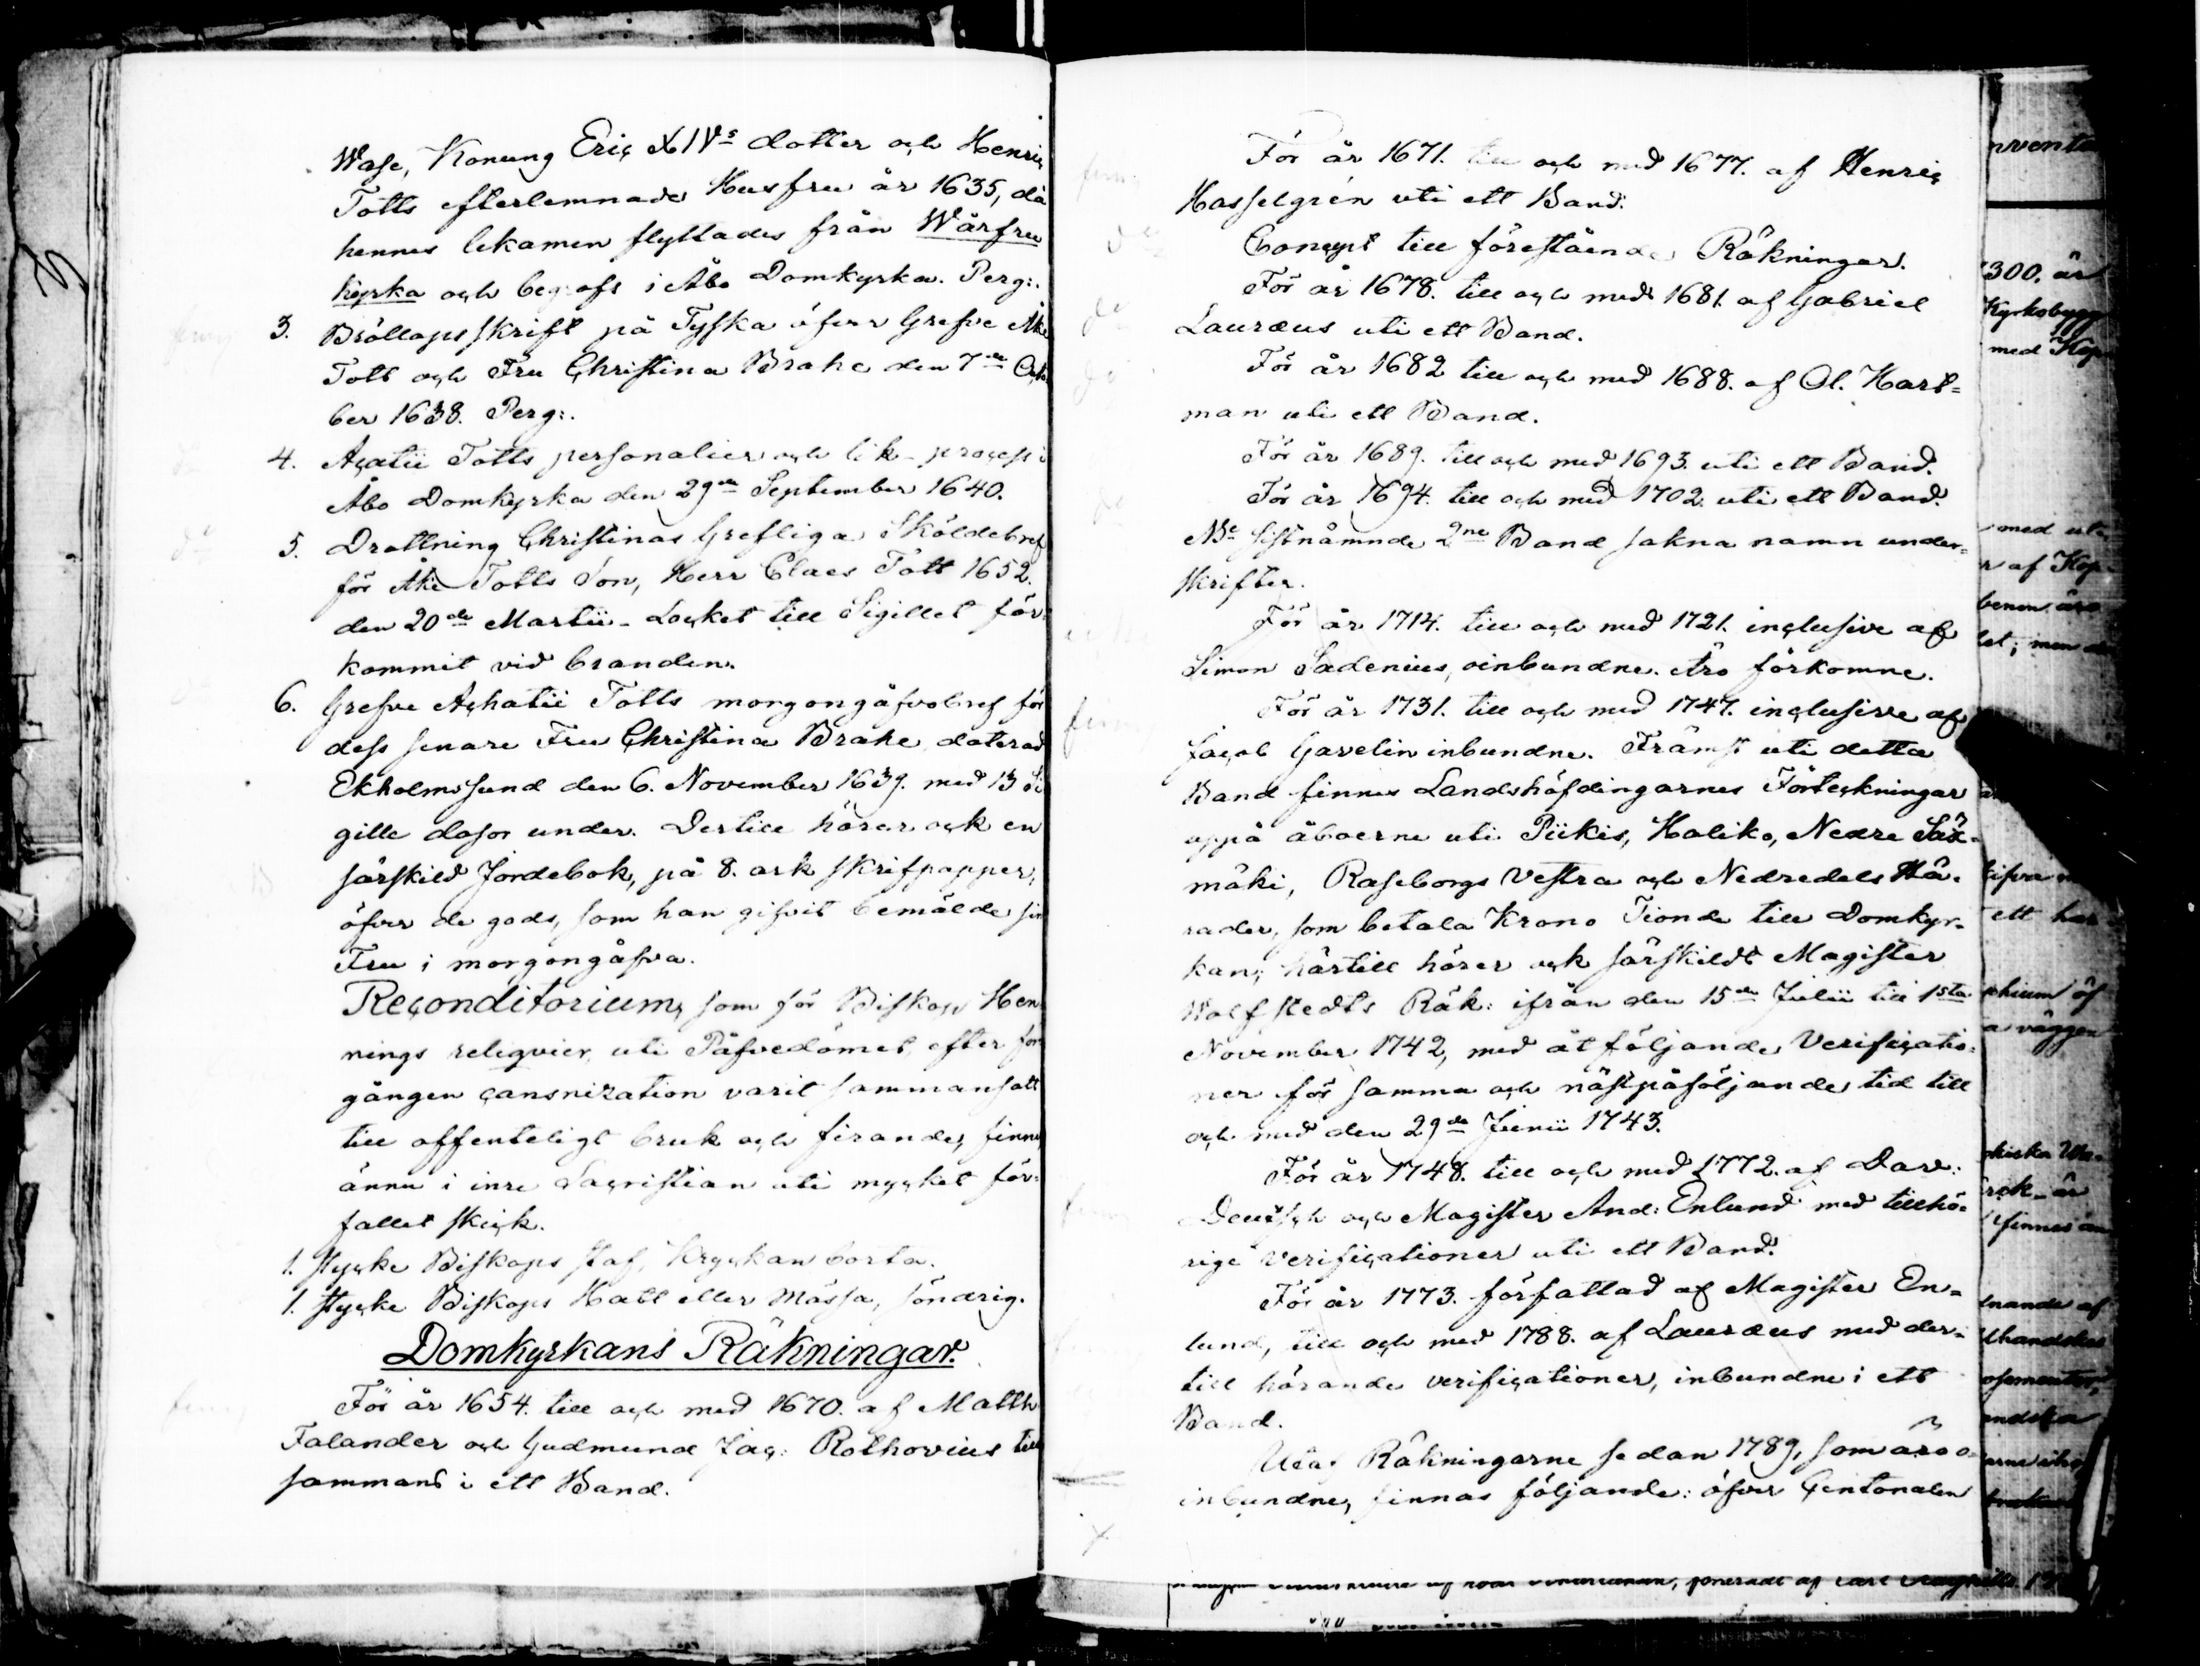 Wase, Konung Eric XIVs dotter och Henric
Totts efterlemnade Husfru år 1635, då
hennes lekamen flyttades från Wårfru
kyrka och begrofs i Åbo Domkyrka. Perg:.
3. Bröllops skrift på Tyska öfver Grefve Åke
Tott och Fru Christina Brahe den 7de Octo
ber 1638. Perg:.
4. Acatii Totts personalier och lik-process i
Åbo Domkyrka den 29de September 1640.
5. Drottning Christinas Grefliga Sköldebref
för Åke Totts Son, Herr Claes Tott 1652.
den 20de Martii - Locket till Sigillet för-
kommit vid branden.
6. Grefve Achatii Totts morgongåfvobref för
dess senare Fru Christina Brahe daterad
Ekholmssund den 6. November 1639. med 13 Si
gille dosor under. Dertill hörer ock en
särskild Jordebok, på 8. ark skrifpapper,
öfver de gods, som han gifvit bemälde sin
Fru i morgongåfva.
Reconditorium, som för Biskop Hen
nings reliqvier, uti Påfvedömet, efter för
gången cansnization varit sammansatt
till offenteligt bruk och firande, finnes
ännu i inre Sacristian uti mycket för-
fallet skick.
1. stycke Biskops staf, kryckan borta.
1. stycke Biskops Hatt eller Mössa, söndrig.
Domkyrkans Räkningar.
För år 1654. till och med 1670. af Matth
Falander och Gudmund Jac: Rothovius till
sammans i ett Band.
För år 1671. till och med 1677. af Henric
Hasselgrén uti ett Band.
Concept till förestående Räkningar.
För år 1678. till och med 1681. af Gabriel
Lauræus uti ett Band.
För år 1682 till och med 1688. af Ol. Hart-
man uti ett Band.
För år 1689. till och med 1693. uti ett Band.
För år 1694. till och med 1702. uti ett Band.
NBe Sistnämnde 2ne Band sakna namn under-
skrifter.
För år 1714. till och med 1721. inclusive af
Simon Sadenius, oinbundne. Äro förkomne.
För år 1731. till och med 1747. inclusive af
Jacob Gavelin inbundne. Främst uti detta
Band finnes Landshöfdingarnes Förteckningar
uppå åboerne uti Piikis, Haliko, Nedre Sax-
mäki, Raseborgs Vestra och Nedredels Hä-
rader, som betala Krono Tionde till Domkyr-
kan; härtill hörer ock särskildt Magister
Wolfstedts Räk: ifrån den 15de Julii till 1sta
November 1742, med åtföljande Verificatio-
ner för samma och nästpåföljande tid till
och med den 29de Junii 1743.
För år 1748. till och med 1772. af Dav:
Deutsch och Magister And: Enlund med tillhö-
rige verificationer uti ett Band.
För år 1773. författad af Magister En-
lund, till och med 1788. af Lauræus med der-
till hörande verificationer, inbundne i ett
Band.
Utaf Räkningarne sedan 1789, som äro o-
inbundne, finnas följande: öfver Qintonalen